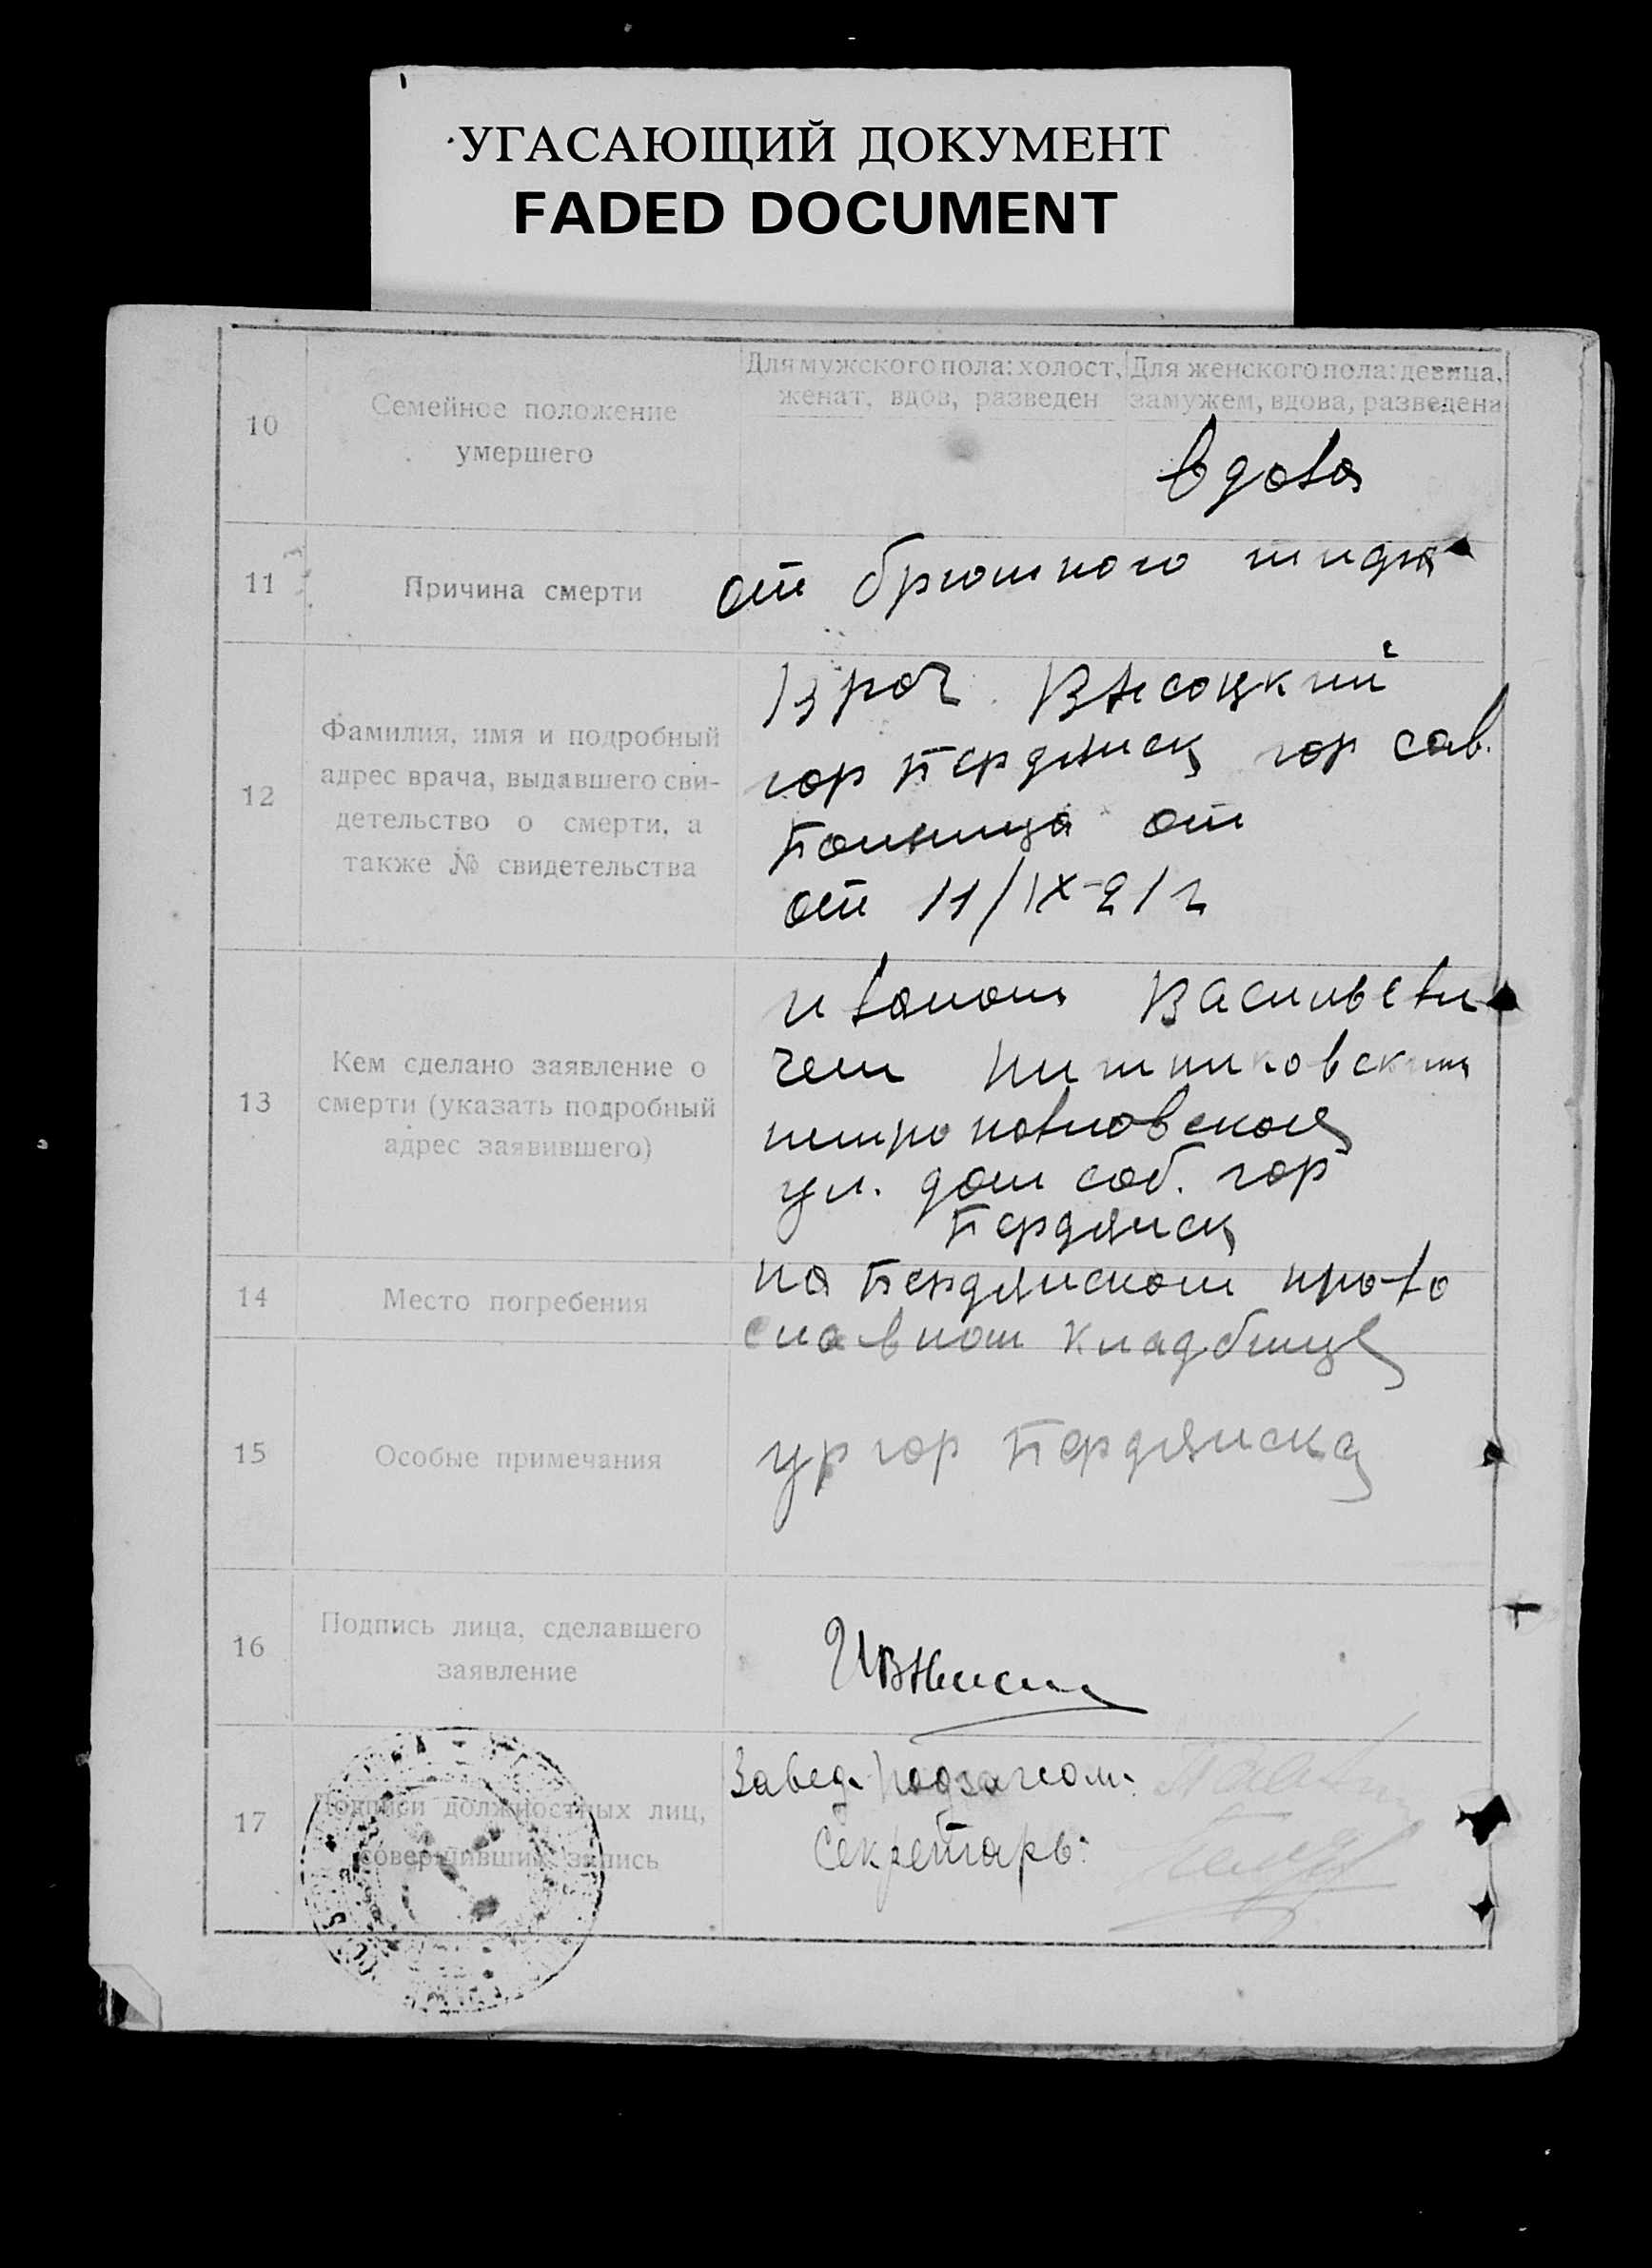 УГАСАЮЩИЙ ДОКУМЕНТ
FADED DOCUMENT
10
Семейное положение
умершего
Для мужского пола: холост,
женат, вдов, разведен
Для женского пола: девица,
замужем, вдова, разведена
вдова
11
Причина смерти
от брюшного тифа
12
Фамилия, имя и подробный
адрес врача, выдавшего сви-
детельство о смерти, а
также № свидетельства
Врач Высоцкий
гор Бердянск гор сов.
Больница от
от 11/IX-21 г
13
Кем сделано заявление о
смерти (указать подробный
адрес заявившего)
Иваном Васильеви
чем
ул. дом соб. гор
Бердянск
14
Место погребения
на Бердянском право
славном кладбище
15
Особые примечания
гор Бердянска
16
Подпись лица, сделавшего
заявление
17
Подписи должностных лиц,
совершивших запись
Завед. подзагсом:
Секретарь: